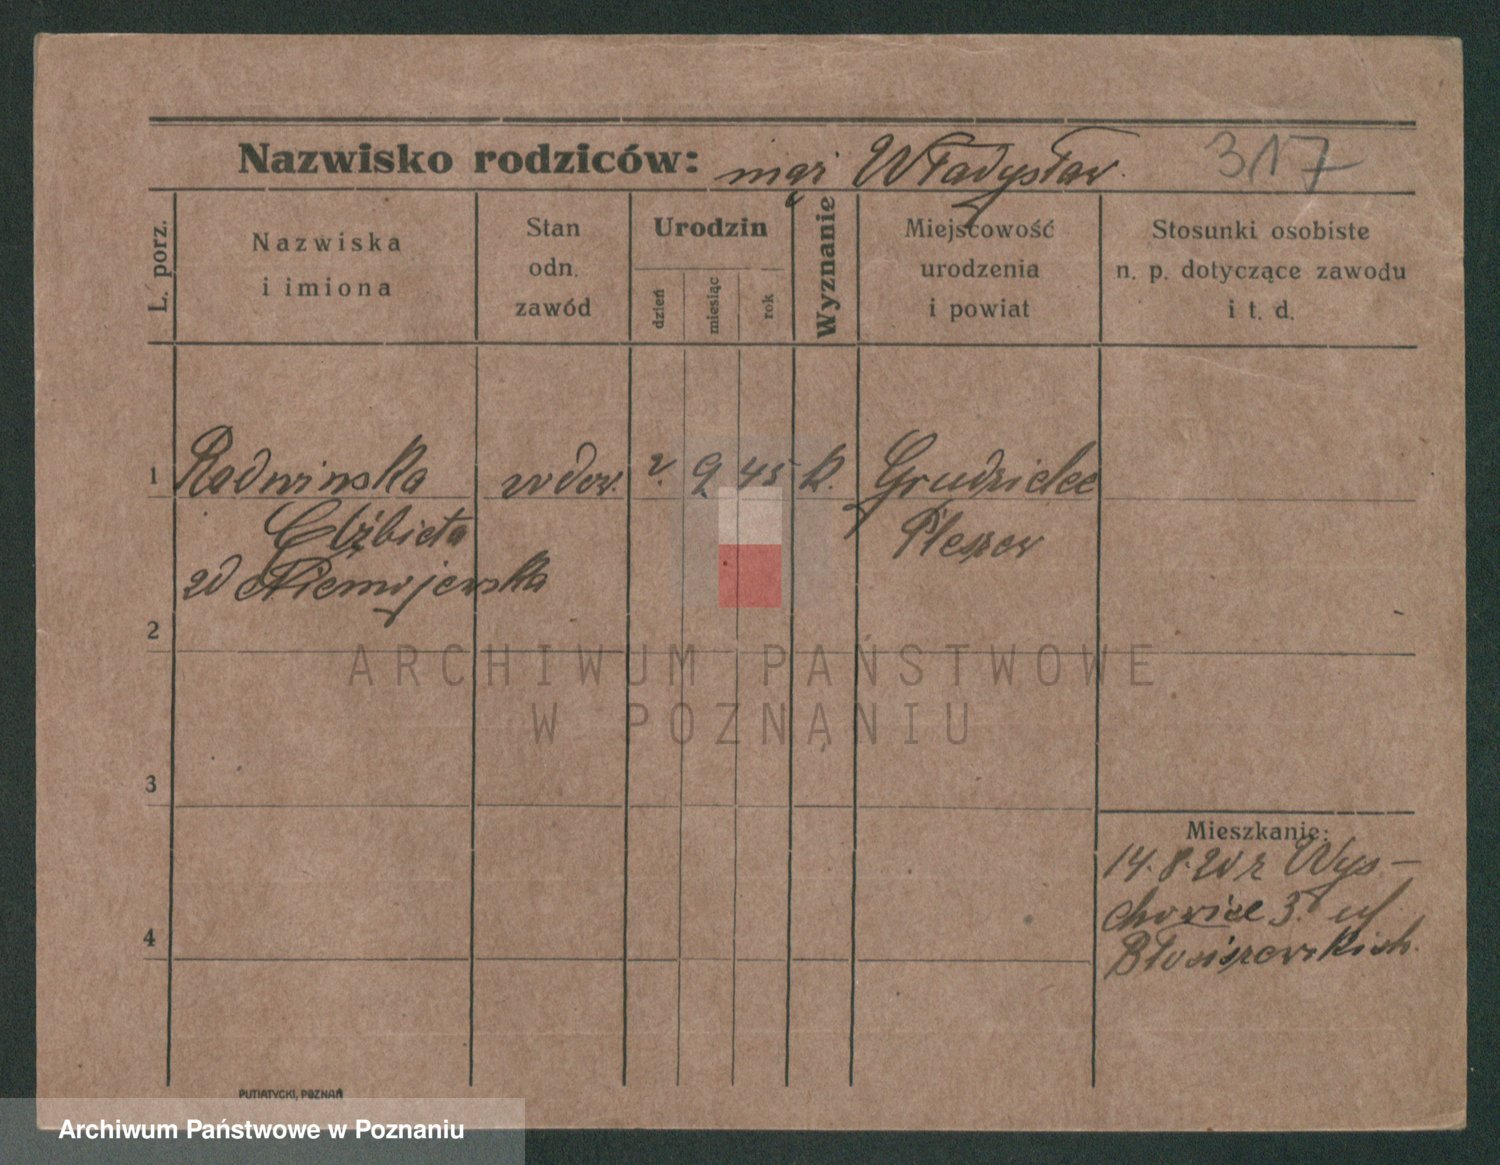 Nazwisko rodziców: mąż Władysław 317
L. porz.
Nazwiska
i imiona
Stan
odn.
zawód
Urodzin
dzień
miesiąc
rok
Wyznanie
Miejscowość
urodzenia
i powiat
Stosunki osobiste
n. p. dotyczące zawodu
i t. d.
1 Radwinska wdow. 2. 9 45 k. Grudzielec
Elżbieta Pleszew
zd Niemojewska
2
3
4
Mieszkanie:
14.8.20 r Wys-
3. ul
PUTIATYCKI, POZNAŃ
ARCHIWUM PAŃSTWOWE
W POZNANIU
Archiwum Państwowe w Poznaniu